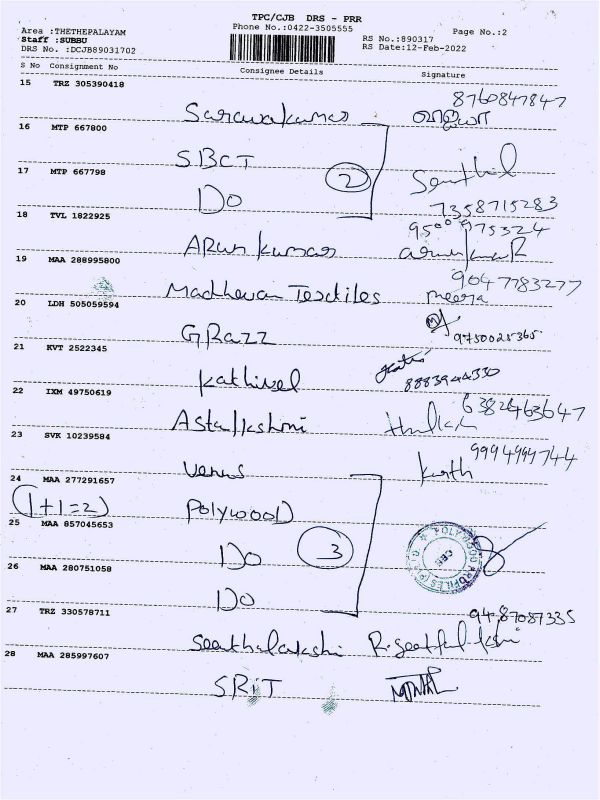 TPC/CJB DRS - PRR
Area :THETHEPALAYAM Phone No.:0422-3505555 Page No.:2
Staff :SUBBU RS No.:890317
DRS No. :DCJB89031702 RS Date:12-Feb-2022
S No Consignment No Consignee Details Signature
15 TRZ 305390418
Saravakumar 8760847847
16 MTP 667800
SBCT
17 MTP 667798 2 Senthil
Do 7358715283
18 TVL 1822925
ARun kumar 9500975324
19 MAA 288995800
Madhevan Textiles 9047783277
meera
20 LDH 505059594
GRazz 9750025365
21 KVT 2522345
Kathivel 8883944330
22 IXM 49750619
Astalkshmi 6382463647
23 SVK 10239584
Venus 9994999744
24 MAA 277291657
(1+1=2) POlywooD
25 MAA 857045653
Do 3
26 MAA 280751058
Do
27 TRZ 330578711
Seethalakshi 9487087335
28 MAA 285997607
SRiT